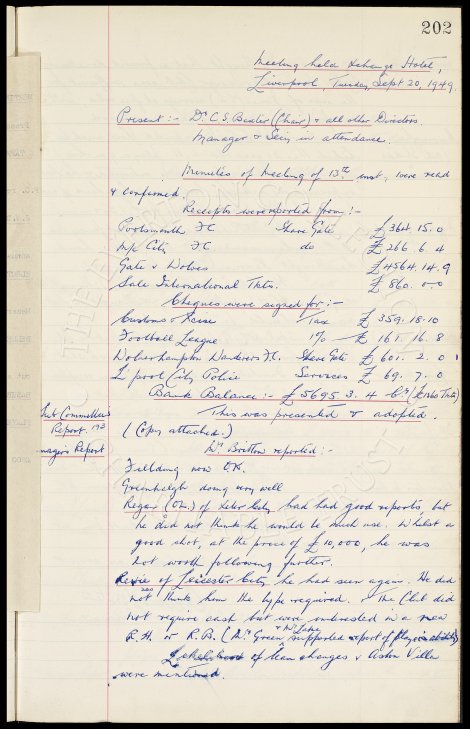 202
Meeting held Xchange Hotel,
Liverpool, Tuesday, Sept 20, 1949.
Present :- Dr C.S. Baxter (Chair) & all other Directors
Manager & Secy in attendance.
Minutes of Meeting of 13th inst. were read
& confirmed
Receipts were reported from :-
Portsmouth FC Share Gate £364. 15. 0
M/c City FC do £266. 6. 4
Gate v Wolves £4564. 14. 9
Sale International Tkts. £860. 0-0
Cheques were signed for :-
Customs & Xcise Tax £359. 18. 10
Football League 1% £161. 16. 8
Wolverhampton Wanderers F.C. Share Gate £601. 2. 0
L'pool City Police Services £69. 7. 0
Bank Balance :- £5695. 3. 4 Cr
Sub Committee's This was presented & adopted.
Report. (Copy attached.)
nager's Report Mr Britton reported :-
Fielding now OK.
Greenhalgh doing very well
Regan of Xeter City had had good reports, but
he did not think he would be much use. Whilst a
good shot, at the price of £10,000, he was
not worth following further.
of Leicester City, he had seen again. He did
not think him the type required. & the Club did
not require cash but were interested in a new
R.H. or R.B. (Mr Green & Mr supported report of
of team changes v Aston Villa
were mentioned.
THE EVERTON COLLECTION
TRUST